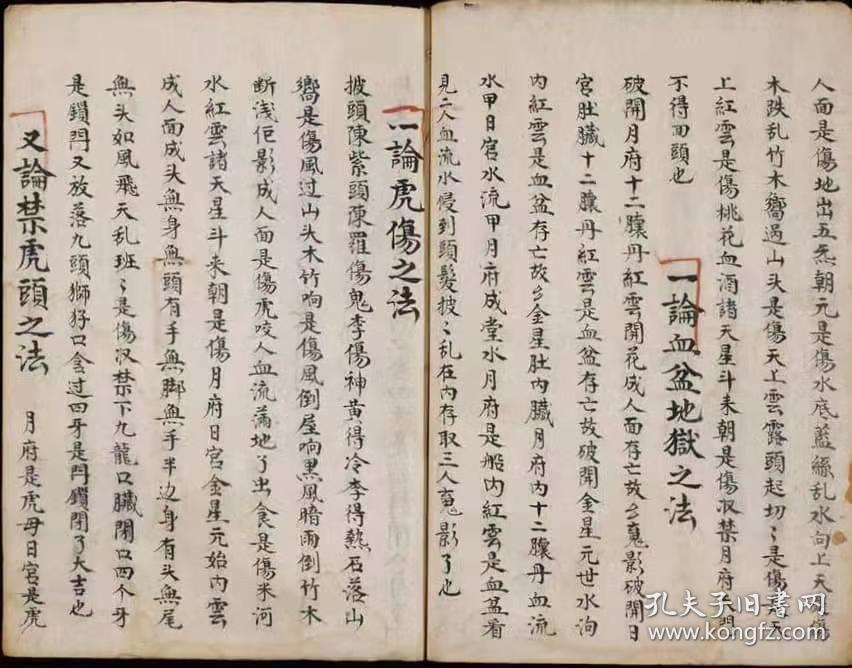 人面是傷地出五炁朝元是傷水底藍絲乱水向上天是傷
木跌乱竹木嚮過山头是傷天上雲露頭起切〻是傷天
上紅雲是傷桃花血酒諸天星斗来朝是傷収禁月府門
不得回頭也
一論血盆地獄之法
破開月府十二臟丹紅雲開花成人面存亡故乡䰟影破開日
宮肚臟十二臟丹紅雲是血盆存亡故破開金星元世水沟
内紅雲是血盆存亡故乡金星肚内臟月府内十二臟丹血流
水甲日宮水流甲月府成堂水月府是船内紅雲是血盆看
見二人血流水侵到頭髮披〻乱在内存取三人䰟影了也
一論虎傷之法
披頭陳紫頭陳羅傷鬼李傷神黄得冷李得熱石落山
嚮是傷風过山头木竹响是傷風倒屋响黒風暗雨倒竹木
断浅佢影成人面是傷虎咬人血流蒲地了出食是傷米河
水紅雲諸天星斗来朝是傷月府日宮金星元始内雲
成人面成头無身無頭有手無脚無手半边身有头無尾
無头如風飛天乱班〻是傷収禁下九龍口臟閉口四个牙
是鎖門又放落九頭獅㺃口含过四牙是門鎖閉了大吉也
又論禁虎頭之法
月府是虎母日宮是虎
孔夫子旧書网
www.kongfz.com